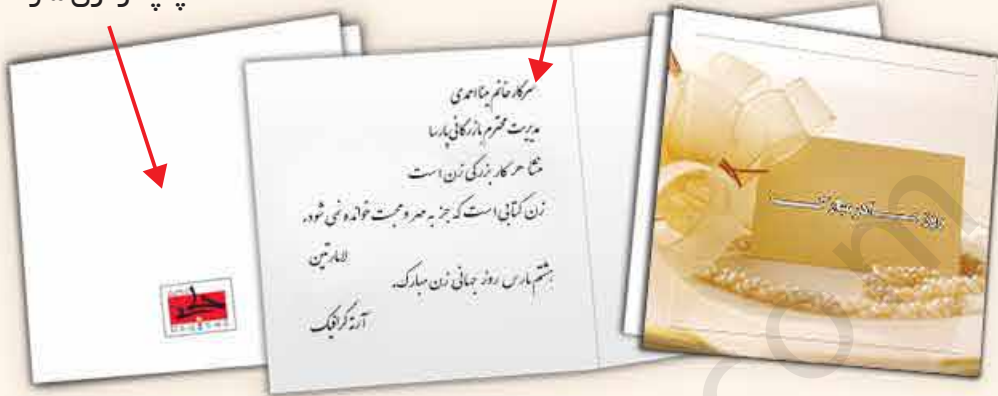 سرکار خانم مینا احمدی
مدیریت محترم بازرگانی پارسا
منشأ هر کار بزرگی زن است
زن کتابی است که جز به مهر و محبت خوانده نمی شود.
لامارتین
هشتم مارس روز جهانی زن مبارک.
روز مادر مبارک
com